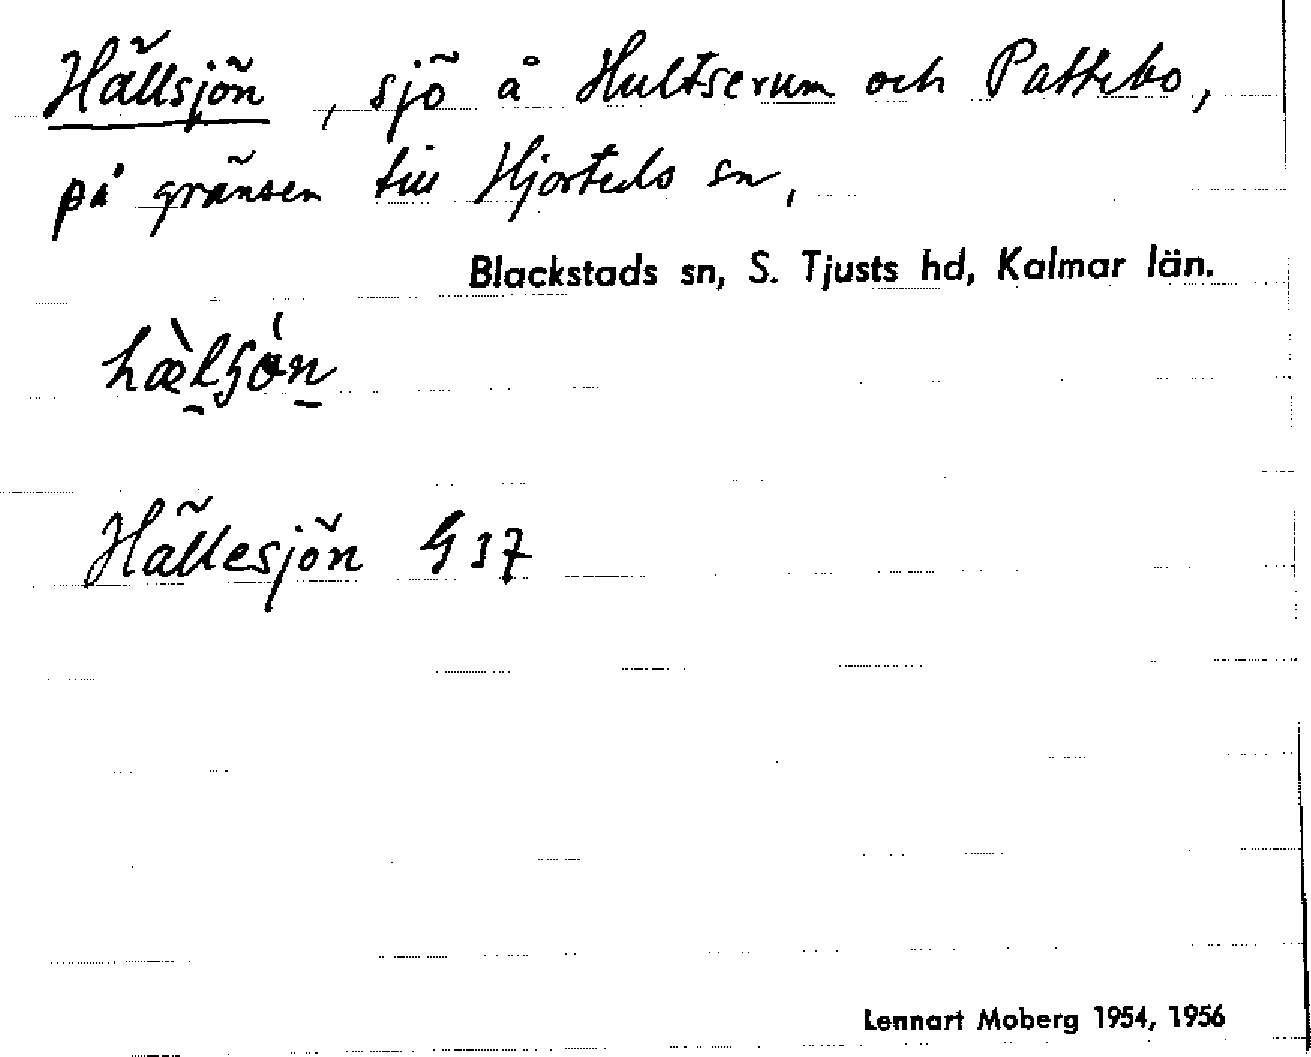 Hällsjön, sjö å Hultserum och Pattebo,
på gränsen till Hjorteds sn,
Blackstads sn, S. Tjusts hd, Kalmar län.
Hällesjön G 37
Lennart Moberg 1954, 1956